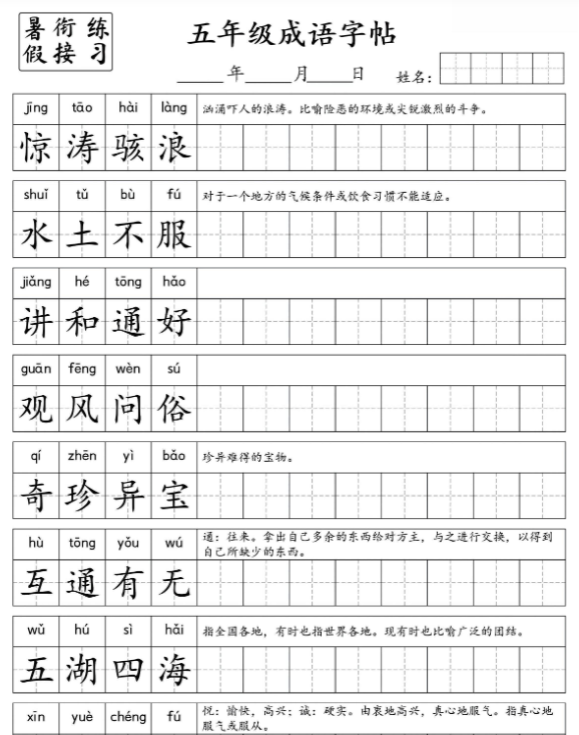 暑 衔 练
假 接 习
五年级成语字帖
年 月 日 姓名:
jīng tāo hài làng
汹涌吓人的浪涛。比喻险恶的环境或尖锐激烈的斗争。
惊 涛 骇 浪
shuǐ tǔ bù fú
对于一个地方的气候条件或饮食习惯不能适应。
水 土 不 服
jiǎng hé tōng hǎo
讲 和 通 好
guān fēng wèn sú
观 风 问 俗
qí zhēn yì bǎo
珍异难得的宝物。
奇 珍 异 宝
hù tōng yǒu wú
通:往来。拿出自己多余的东西给对方主,与之进行交换,以得到
自己所缺少的东西。
互 通 有 无
wǔ hú sì hǎi
指全国各地,有时也指世界各地。现有时也比喻广泛的团结。
五 湖 四 海
xīn yuè chéng fú
悦:愉快,高兴;诚:确实。由衷地高兴,真心地服气。指真心地
服气或服从。